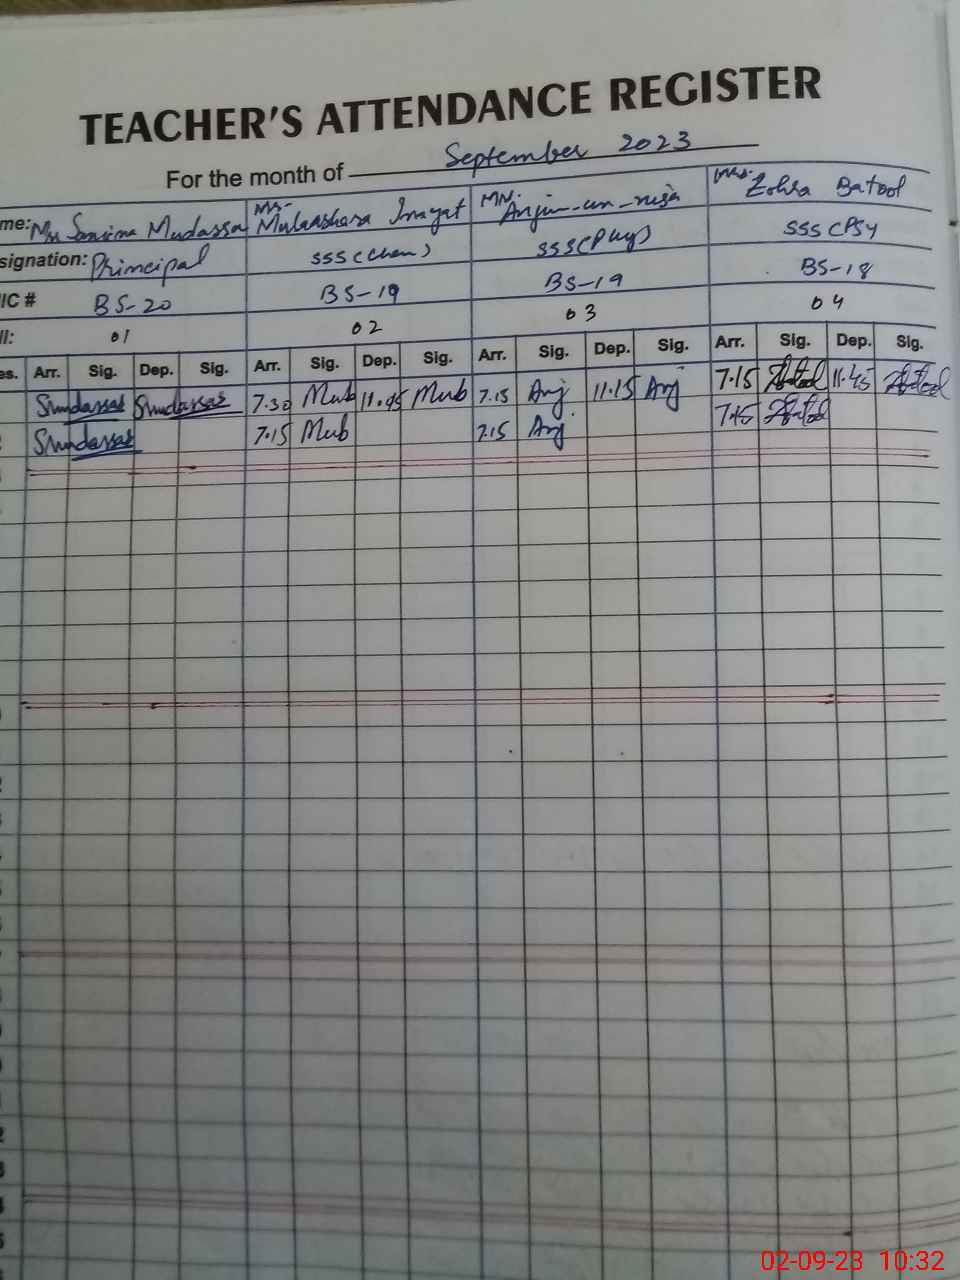 TEACHER'S ATTENDANCE REGISTER
For the month of September 2023
me: Mrs Mudassar Ms. Inayat Mrs. Anjum-un-nisa Mrs. Zohra Batool
signation: Principal SSS (Chem) SSS (Phy) SSS (PSY
IC # BS-20 BS-19 BS-19 BS-18
ll: 01 02 03 04
es. Arr. Sig. Dep. Sig. Arr. Sig. Dep. Sig. Arr. Sig. Dep. Sig. Arr. Sig. Dep. Sig.
Smudassar Smudassar 7.30 Mub 11.45 Mub 7.15 Anj 11.15 Anj 7.15 Zbatool 11.45 Zbatool
Smudassar 7.15 Mub 7.15 Anj 7.15 Zbatool
02-09-23 10:32